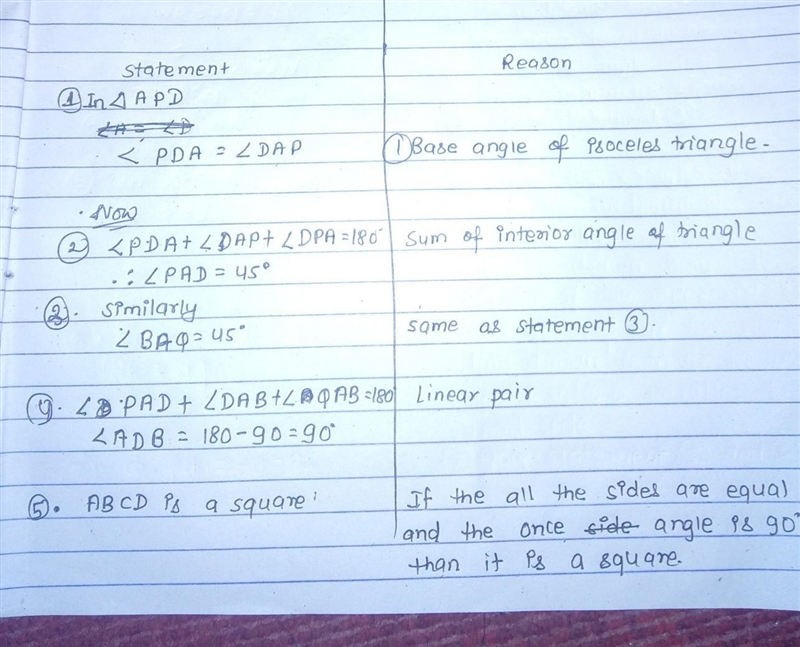 Statement Reason
① In △ APD
∠A = ∠D
∠ PDA = ∠DAP ① Base angle of isoceles triangle.
. Now
② ∠PDA + ∠DAP + ∠DPA = 180° Sum of interior angle of triangle
∴ ∠PAD = 45°
③. Similarly
∠BAQ = 45° same as statement ③.
④. ∠ PAD + ∠DAB + ∠QAB = 180 Linear pair
∠ADB = 180 - 90 = 90°
⑤. ABCD is a square. If the all the sides are equal
and the once side angle is 90°
than it is a square.